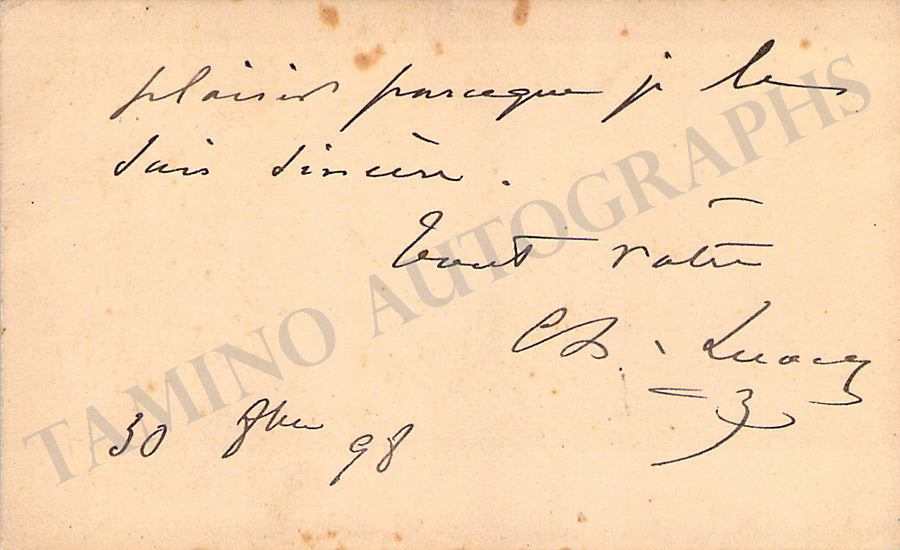 plaisir parceque je le
sais sincère.
Tout votre
Ch. Lecocq
30 8bre 98
TAMINO AUTOGRAPHS